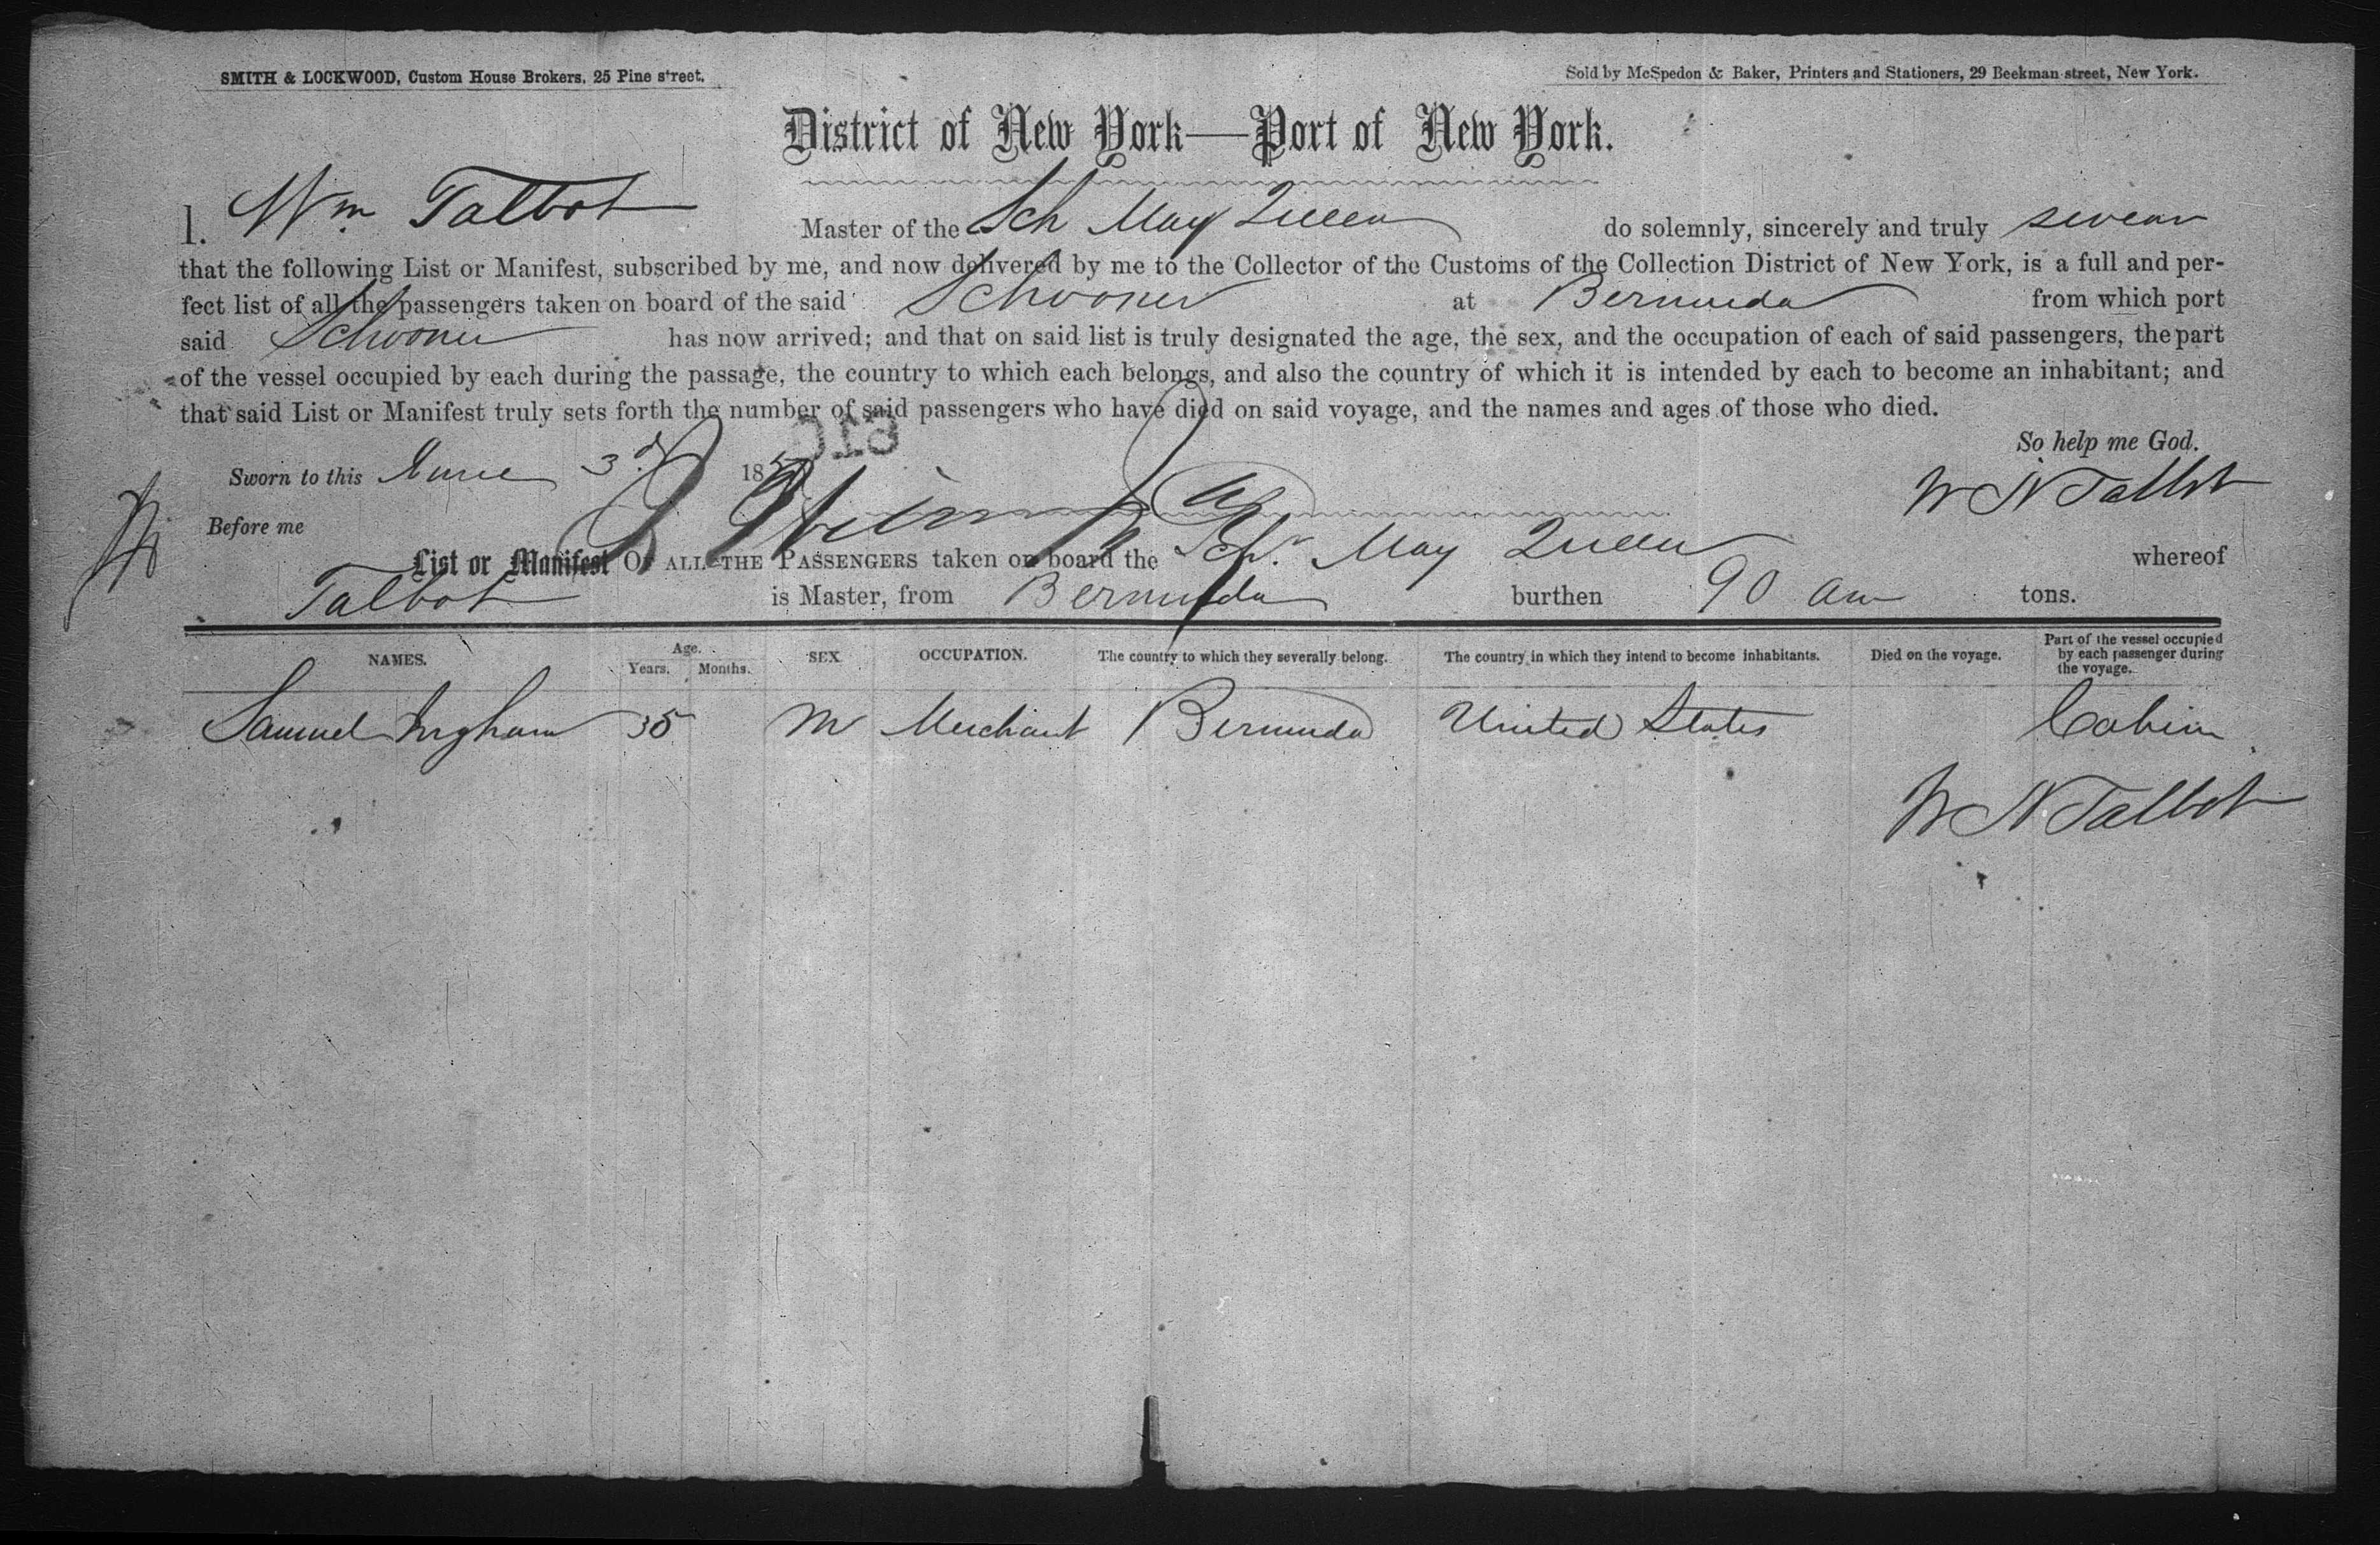 SMITH & LOCKWOOD, Custom House Brokers, 25 Pine street.
Sold by McSpedon & Baker, Printers and Stationers, 29 Beekman street, New York.
District of New York—Port of New York.
I. Wm Talbot Master of the Sch May Queen do solemnly, sincerely and truly swear
that the following List or Manifest, subscribed by me, and now delivered by me to the Collector of the Customs of the Collection District of New York, is a full and per-
fect list of all the passengers taken on board of the said Schooner at Bermuda from which port
said Schooner has now arrived; and that on said list is truly designated the age, the sex, and the occupation of each of said passengers, the part
of the vessel occupied by each during the passage, the country to which each belongs, and also the country of which it is intended by each to become an inhabitant; and
that said List or Manifest truly sets forth the number of said passengers who have died on said voyage, and the names and ages of those who died.
So help me God.
Sworn to this June 3d 185
W N Talbot
Before me
List or Manifest OF ALL THE PASSENGERS taken on board the Schr. May Queen whereof
Talbot is Master, from Bermuda burthen 90 Am tons.
NAMES. Age. Years. Months. SEX OCCUPATION. The country to which they severally belong. The country in which they intend to become inhabitants. Died on the voyage. Part of the vessel occupied by each passenger during the voyage.
Samuel Ingham 35 M Merchant Bermuda United States Cabin
W N Talbot